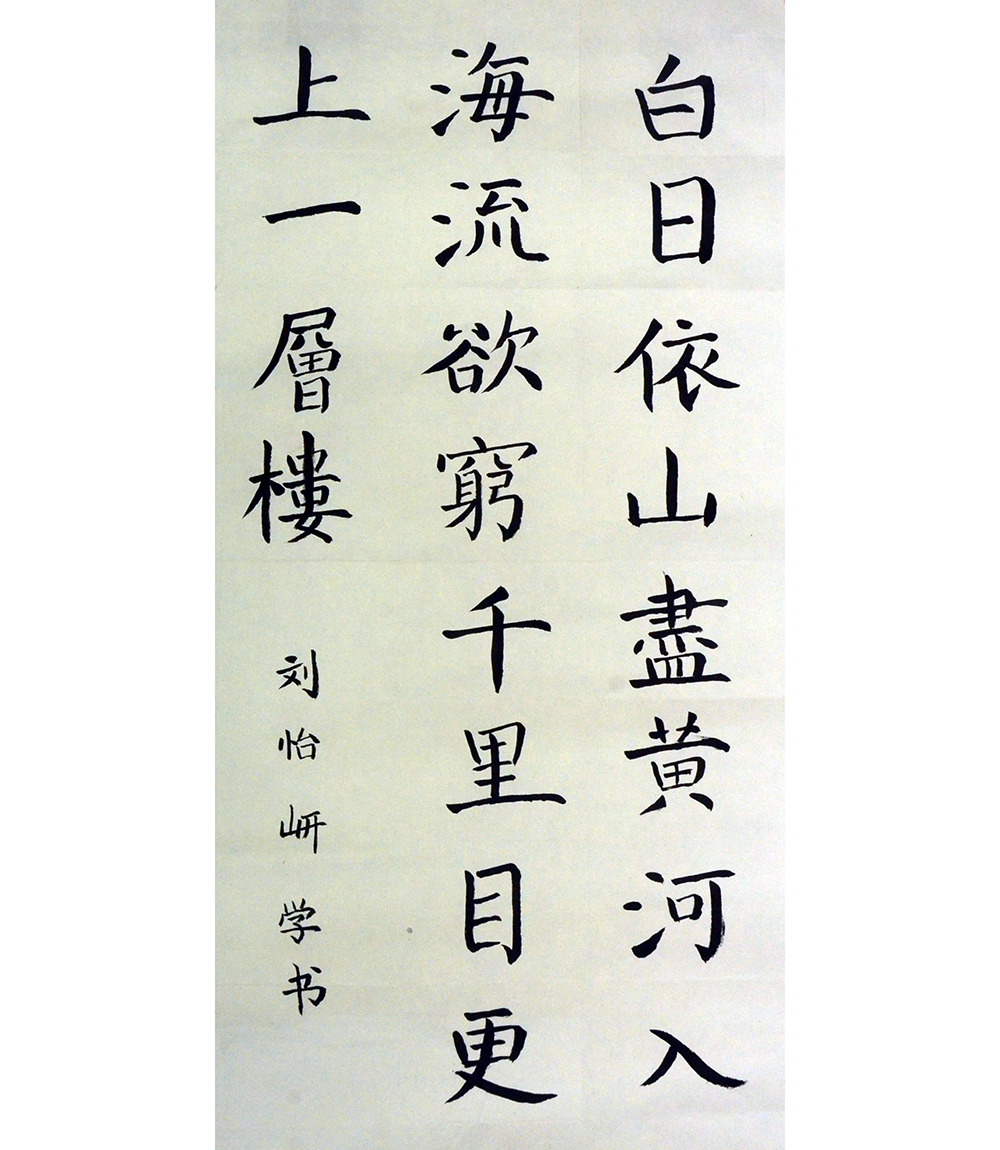 白日依山盡黄河入
海流欲窮千里目更
上一層樓
刘怡岍学书